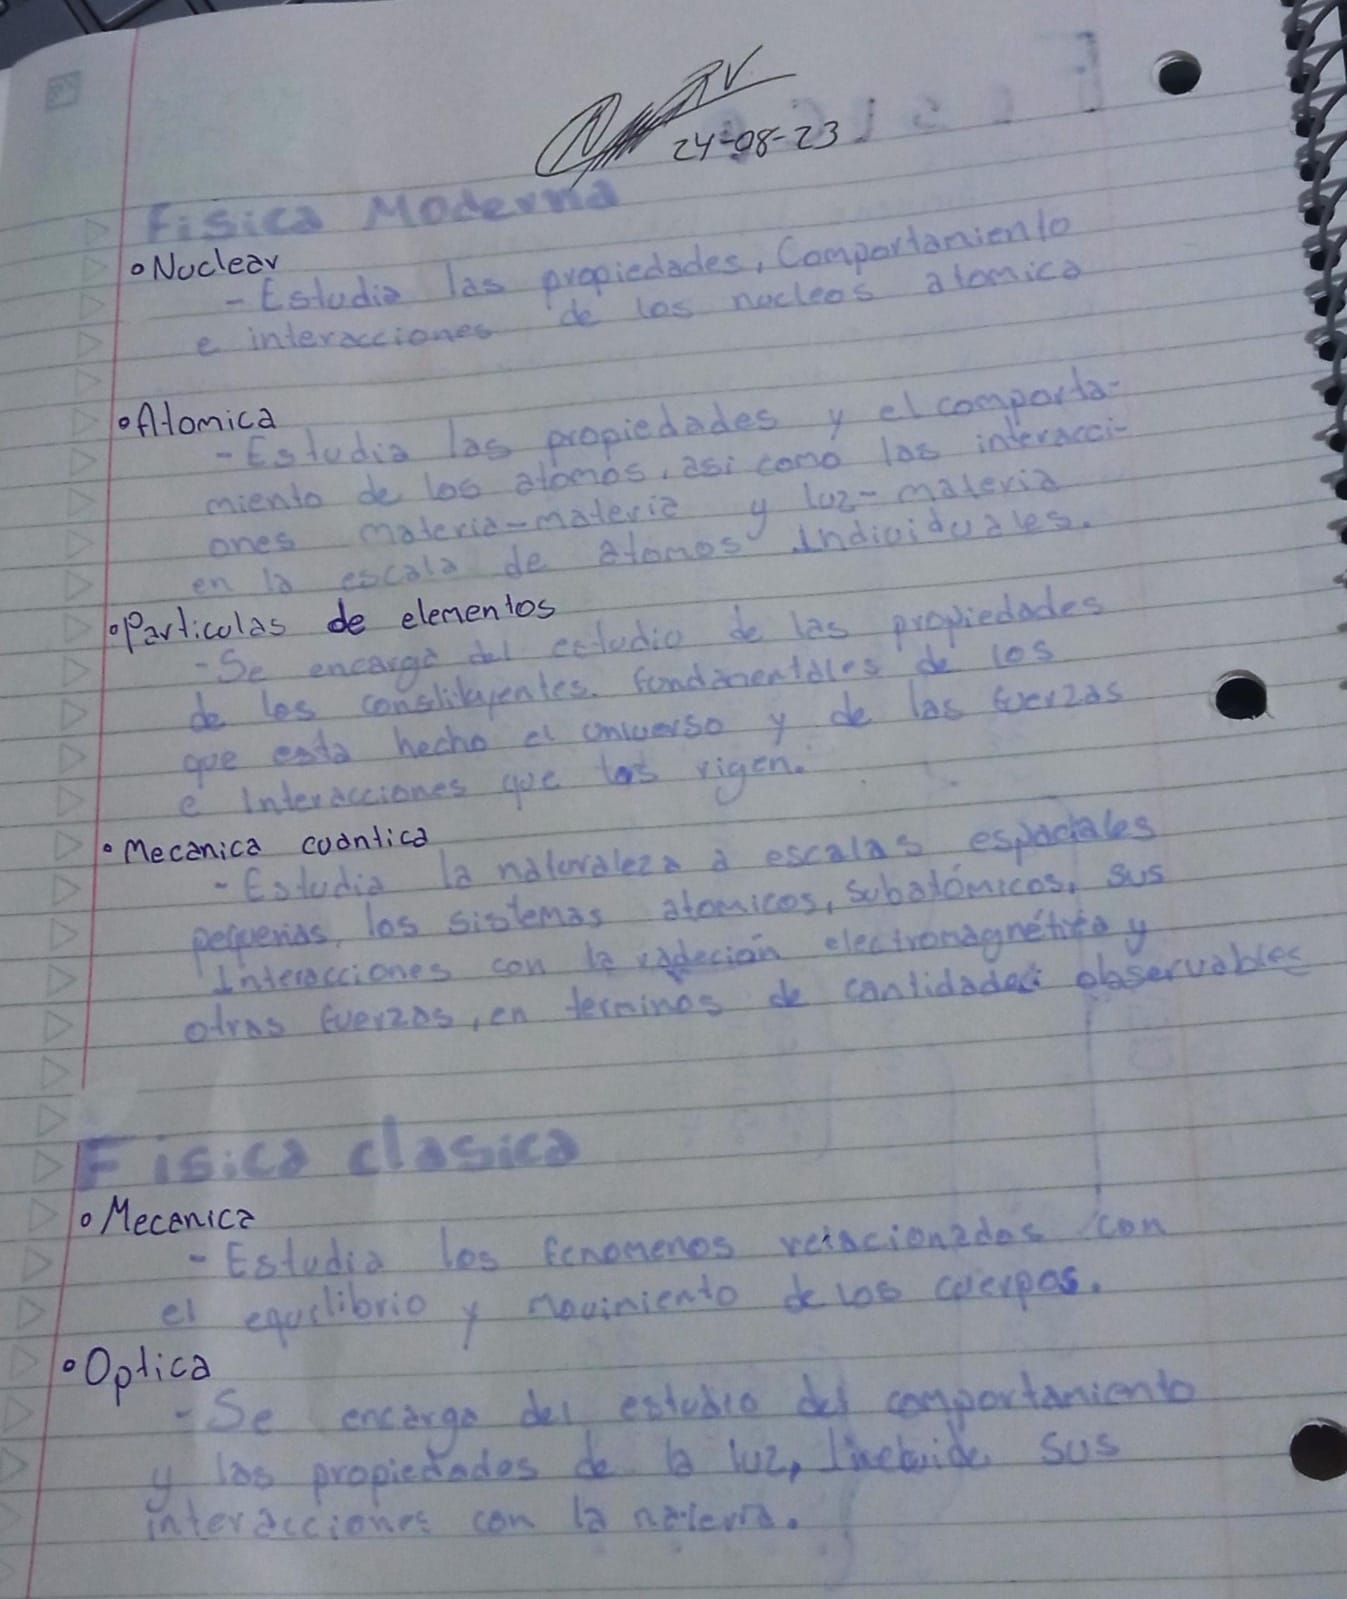 RV
24-08-23
Fisica Moderna
• Nuclear
- Estudia las propiedades, Comportamiento
e interacciones de los nucleos atomica
• Atomica
- Estudia las propiedades y el comporta-
miento de los atomos, asi como las interacci-
ones materia-materia y luz-materia
en la escala de atomos individuales.
• Particulas de elementos
- Se encarga del estudio de las propiedades
de los constituyentes. fundamentales de los
que esta hecho el universo y de las fuerzas
e Interacciones que las rigen.
• Mecanica cuantica
- Estudia la naturaleza a escalas espaciales
pequeñas, los sistemas atomicos, subatómicos, sus
Interacciones con la radeción electromagnética y
otras fuerzas, en terminos de cantidades observables
Fisica clasica
• Mecanica
- Estudia los fenomenos relacionados con
el equilibrio y movimiento de los cuerpos.
• Optica
- Se encarga del estudio del comportamiento
y las propiedades de la luz, sus
interacciones con la materia.